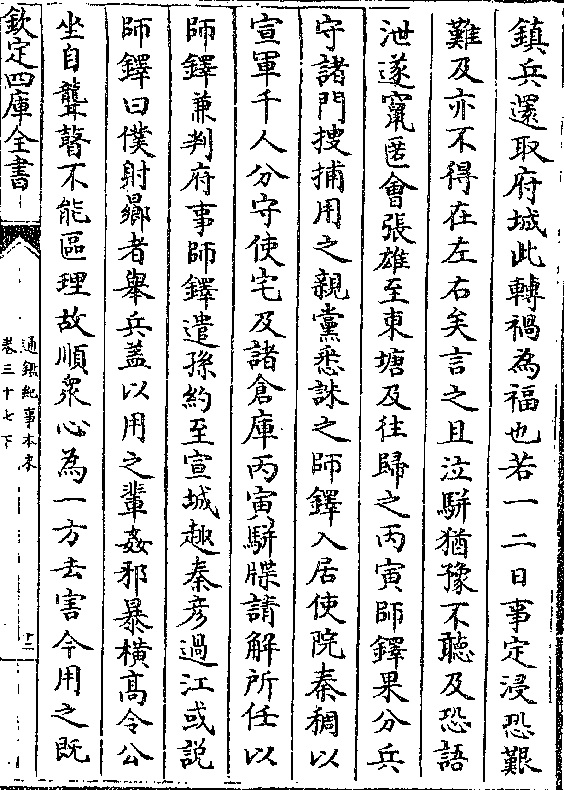 鎮兵還取府城此轉禍為福也若一二日事定浸恐艱
難及亦不得在左右矣言之且泣駢猶豫不聽及恐語
泄遂竄匿會張雄至東塘及往歸之丙寅師鐸果分兵
守諸門搜捕用之親黨悉誅之師鐸入居使院秦稠以
宣軍千人分守使宅及諸倉庫丙寅駢牒請解所任以
師鐸兼判府事師鐸遣孫約至宣城趣秦彦過江或説
師鐸曰僕射嚮者舉兵蓋以用之輩姦邪暴横高令公
坐自聾瞽不能區理故順衆心為一方去害今用之既
欽定四庫全書
通鑑紀事本末
卷三十七下
十二